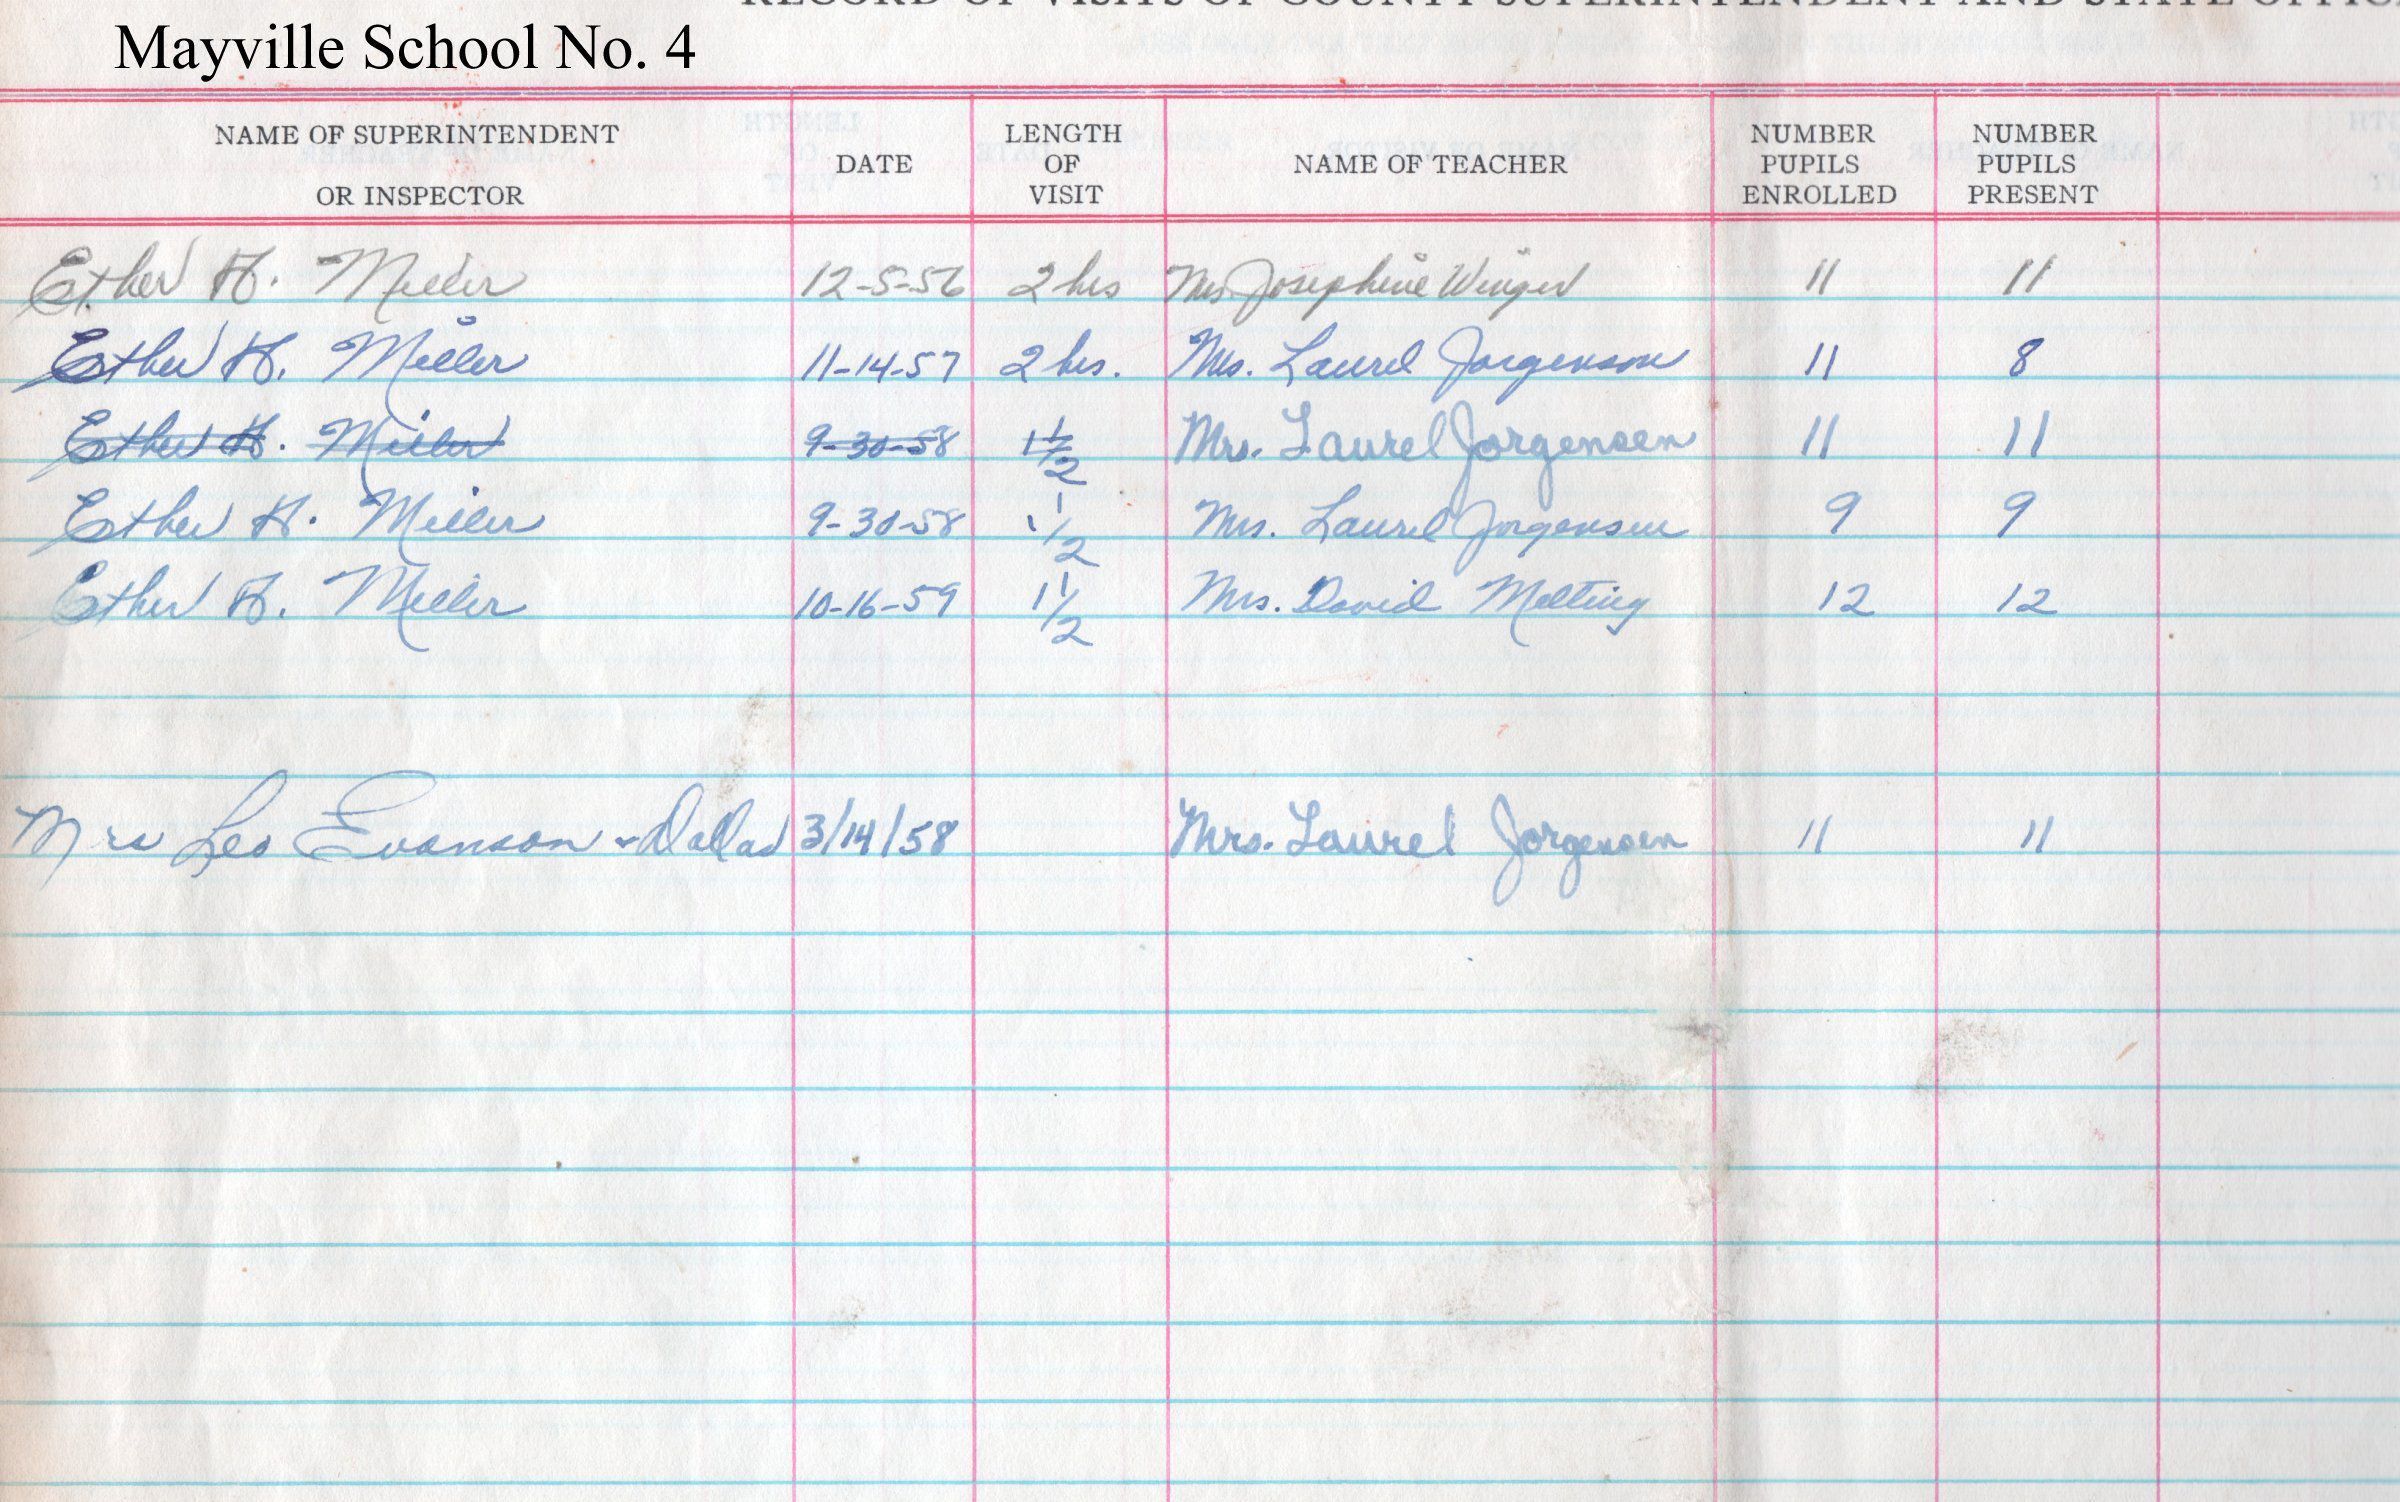 RECORD OF VISITS OF COUNTY SUPERINTENDENT AND STATE OFFIC
Mayville School No. 4
NAME OF SUPERINTENDENT OR INSPECTOR DATE LENGTH OF VISIT NAME OF TEACHER NUMBER PUPILS ENROLLED NUMBER PUPILS PRESENT
Esther H. Miller 12-5-56 2 hrs Mrs Josephine Winger 11 11
Esther H. Miller 11-14-57 2 hrs. Mrs. Laurel Jorgenson 11 8
Esther H. Miller 9-30-58 1 1/2 Mrs. Laurel Jorgensen 11 11
Esther H. Miller 9-30-58 1 1/2 Mrs. Laurel Jorgensen 9 9
Esther H. Miller 10-16-59 1 1/2 Mrs. David Melting 12 12
Mrs Leo Evanson + Dallas 3/14/58 Mrs. Laurel Jorgensen 11 11